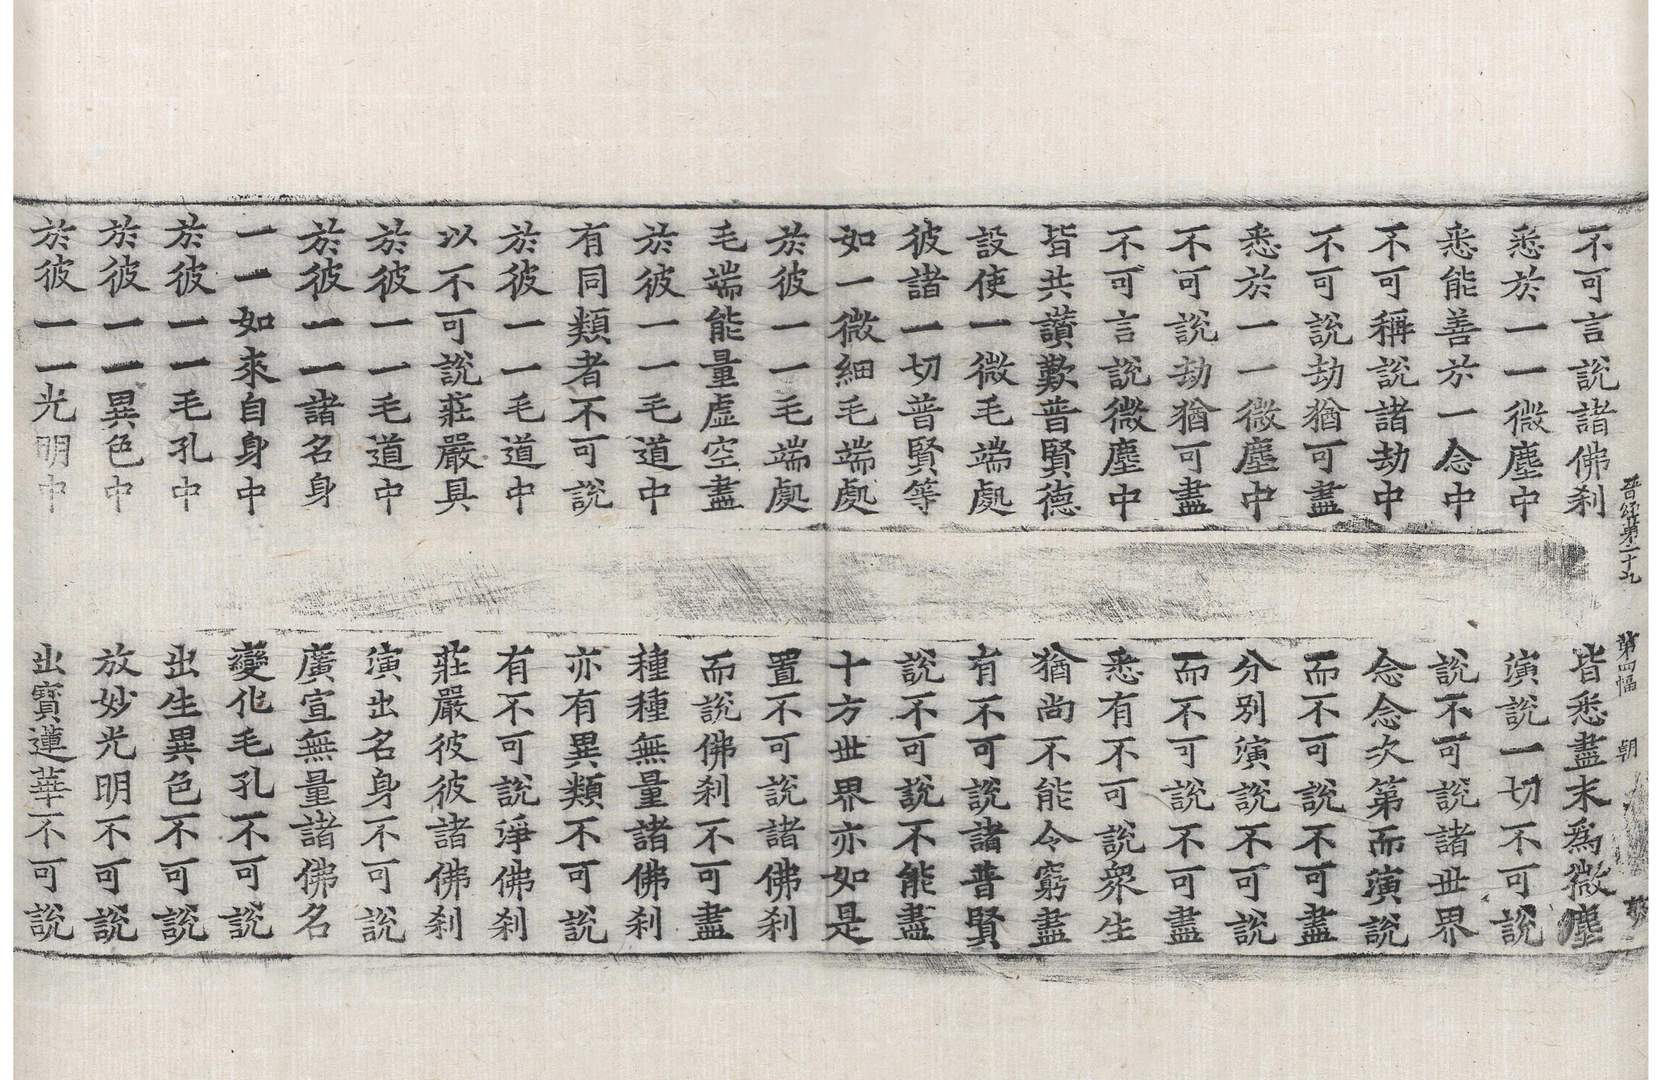 晉經第二十九　第四幅　朝
不可言說諸佛刹　皆悉盡末爲微塵
悉於一一微塵中　演說一切不可說
悉能善於一念中　說不可說諸世界
不可稱說諸劫中　念念次第而演說
不可說劫猶可盡　而不可說不可盡
悉於一一微塵中　分別演說不可說
不可說劫猶可盡　而不可說不可盡
不可言說微塵中　悉有不可說衆生
皆共讚歎普賢德　猶尚不能令窮盡
設使一微毛端處　有不可說諸普賢
彼諸一切普賢等　說不可說不能盡
如一微細毛端處　十方世界亦如是
於彼一一毛端處　置不可說諸佛刹
毛端能量虛空盡　而說佛刹不可盡
於彼一一毛道中　種種無量諸佛刹
有同類者不可說　亦有異類不可說
於彼一一毛道中　有不可說淨佛刹
以不可說莊嚴具　莊嚴彼彼諸佛刹
於彼一一毛道中　演出名身不可說
於彼一一諸名身　廣宣無量諸佛名
一一如來自身中　變化毛孔不可說
於彼一一毛孔中　出生異色不可說
於彼一一異色中　放妙光明不可說
於彼一一光明中　出寶蓮華不可說